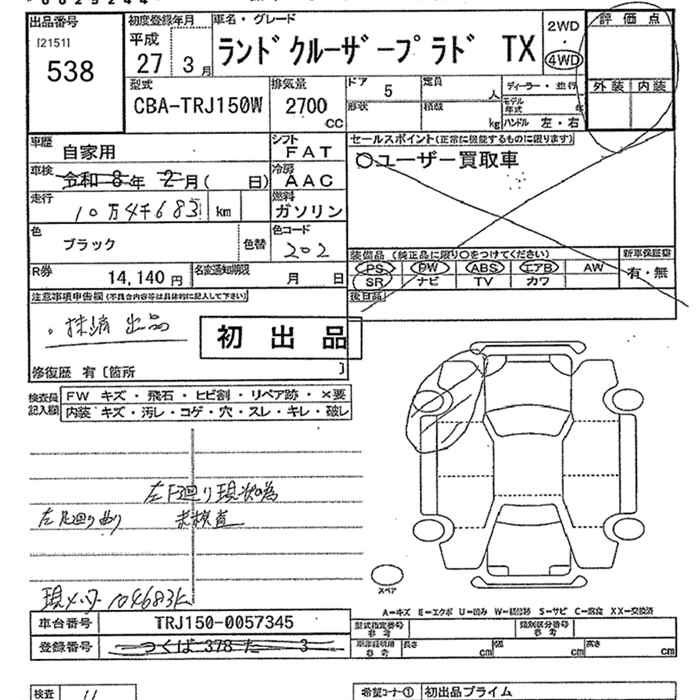 出品番号
[2151]
538
初度登録年月
平成
27 3月
車名・グレード
ランドクルーザープラド TX
2WD
・
4WD
評価点
外装 内装
型式
CBA-TRJ150W
排気量
2700
CC
ドア 5
定員
人
形状
積載
kg
ディーラー・並行
モデル年式 年
ハンドル 左・右
車歴
自家用
シフト
FAT
車検
令和8年2月( 日)
冷房
AAC
走行
10万4千683 km
燃料
ガソリン
色
ブラック
色替
色コード
202
R券
14,140円
名変通知期限
月 日
セールスポイント(正常に機能するものに限ります)
○ユーザー買取車
装備品(純正品に限り○をつけてください)
新車保証書
PS PW ABS エアB AW
SR ナビ TV カワ
有・無
後日品
注意事項申告欄(不具合内容等は具体的に記入して下さい)
。抹消出品
初出品
修復歴 有 [箇所 ]
検査員記入欄
FW キズ・飛石・ヒビ割・リペア跡・×要
内装 キズ・汚レ・コゲ・穴・スレ・キレ・破レ
左下廻り現状の為
左足廻り曲り 未検査
現メーター104683k
スペア
A=キズ E=エクボ U=凹み W=補修跡 S=サビ C=腐食 XX=交換済
車台番号
TRJ150-0057345
登録番号
つくば 378 た 3
型式指定番号
参考
類別区分番号
参考
参考
長さ cm
幅 cm
高さ cm
検査
希望コーナー① 初出品プライム